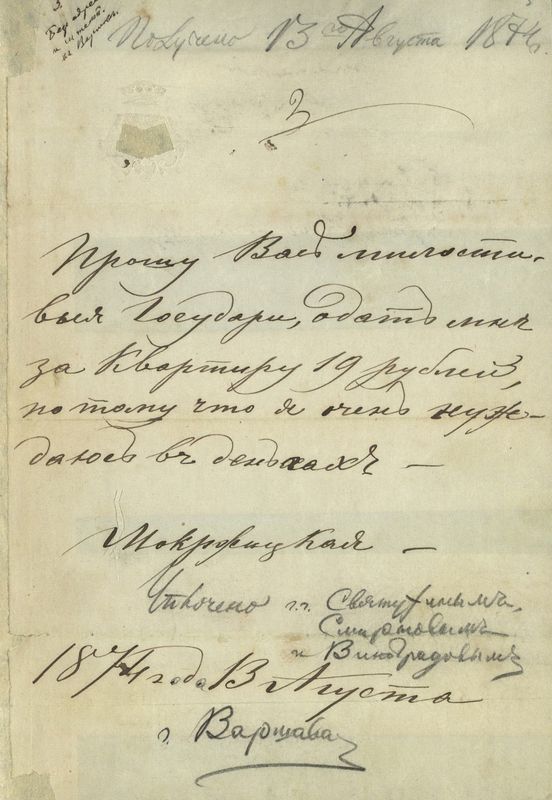 Получено 13го Августа 1874г.
Прошу Васъ милости-
выя Государи, одать мнѣ
за Квартиру 19 рублей,
потому что я очень нуж-
даюсь въ деньгахъ —
Мокржицкая —
г.г. Святухинымъ,
Смирновымъ
и Виноградовымъ
1874 года 13 Августа
г. Варшава